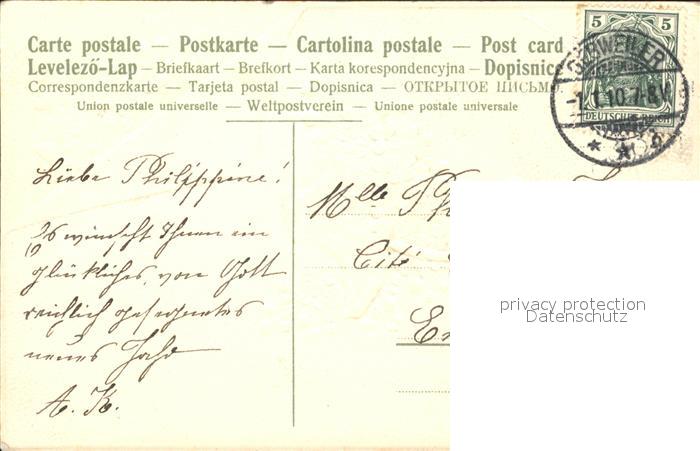 Carte postale — Postkarte — Cartolina postale — Post card
Levelező-Lap — Briefkaart — Brefkort — Karta korespondencyjna — Dopisnice
Correspondenzkarte — Tarjeta postal — Dopisnica — ОТКРЫТОЕ ПИСЬМО
Union postale universelle — Weltpostverein — Unione postale universale
5 5
DEUTSCHES REICH
1.1.10.7-8V
Liebe Philippine!
Es wünscht Ihnen ein
glückliches, von Gott
reichlich gesegnetes
neues Jahr
A. K.
Mlle
Cité
privacy protection
Datenschutz